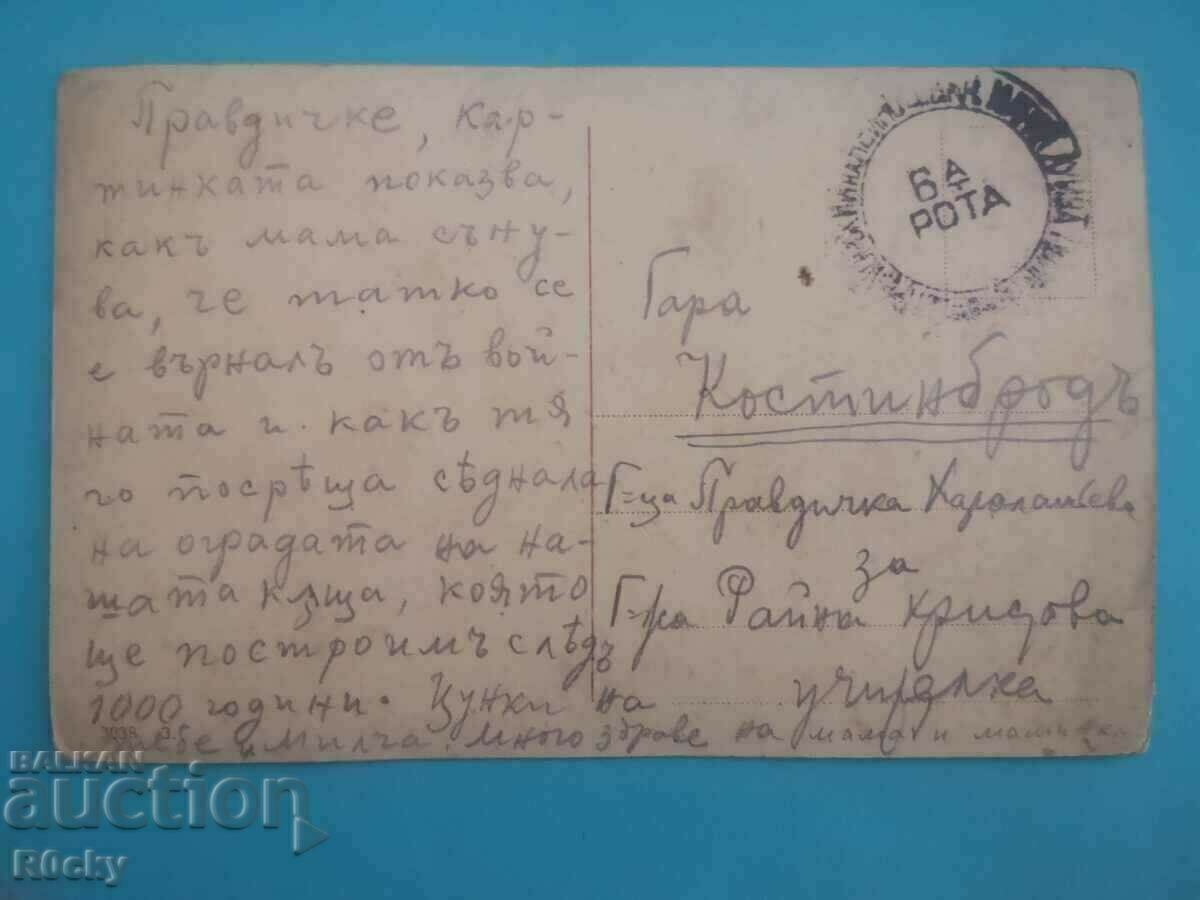 Правдичке, кар-
тинката показва,
какъ мама съну-
ва, че татко се
е върналъ отъ вой-
ната и какъ тя
го посрѣща сѣднала
на оградата на на-
шата кѫща, която
ще построимъ слѣдъ
1000 години. Цунки на
тебе и Милча. Много здраве на мама и
64
РОТА
Гара
Костинбродъ
Г-ца Правдичка
за
Г-жа Райна Христова
учителка
3038
BALKAN
auction
R0cky